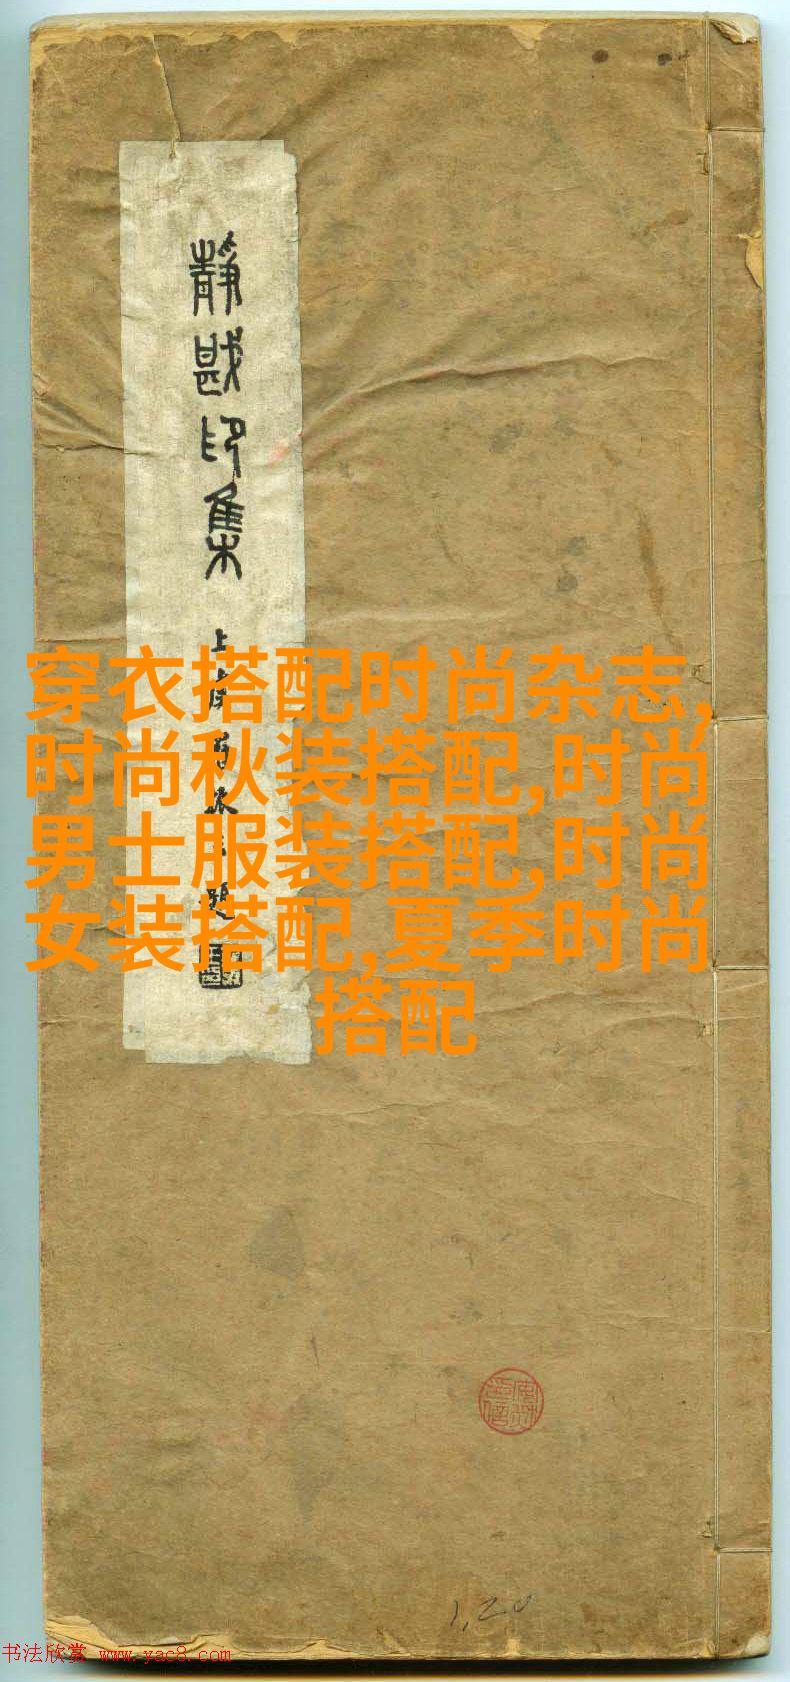 静戡印集
穿衣搭配时尚杂志,
时尚秋装搭配,时尚
男士服装搭配,时尚
女装搭配,夏季时尚
搭配
1,20
书法欣赏 www.yac8.com